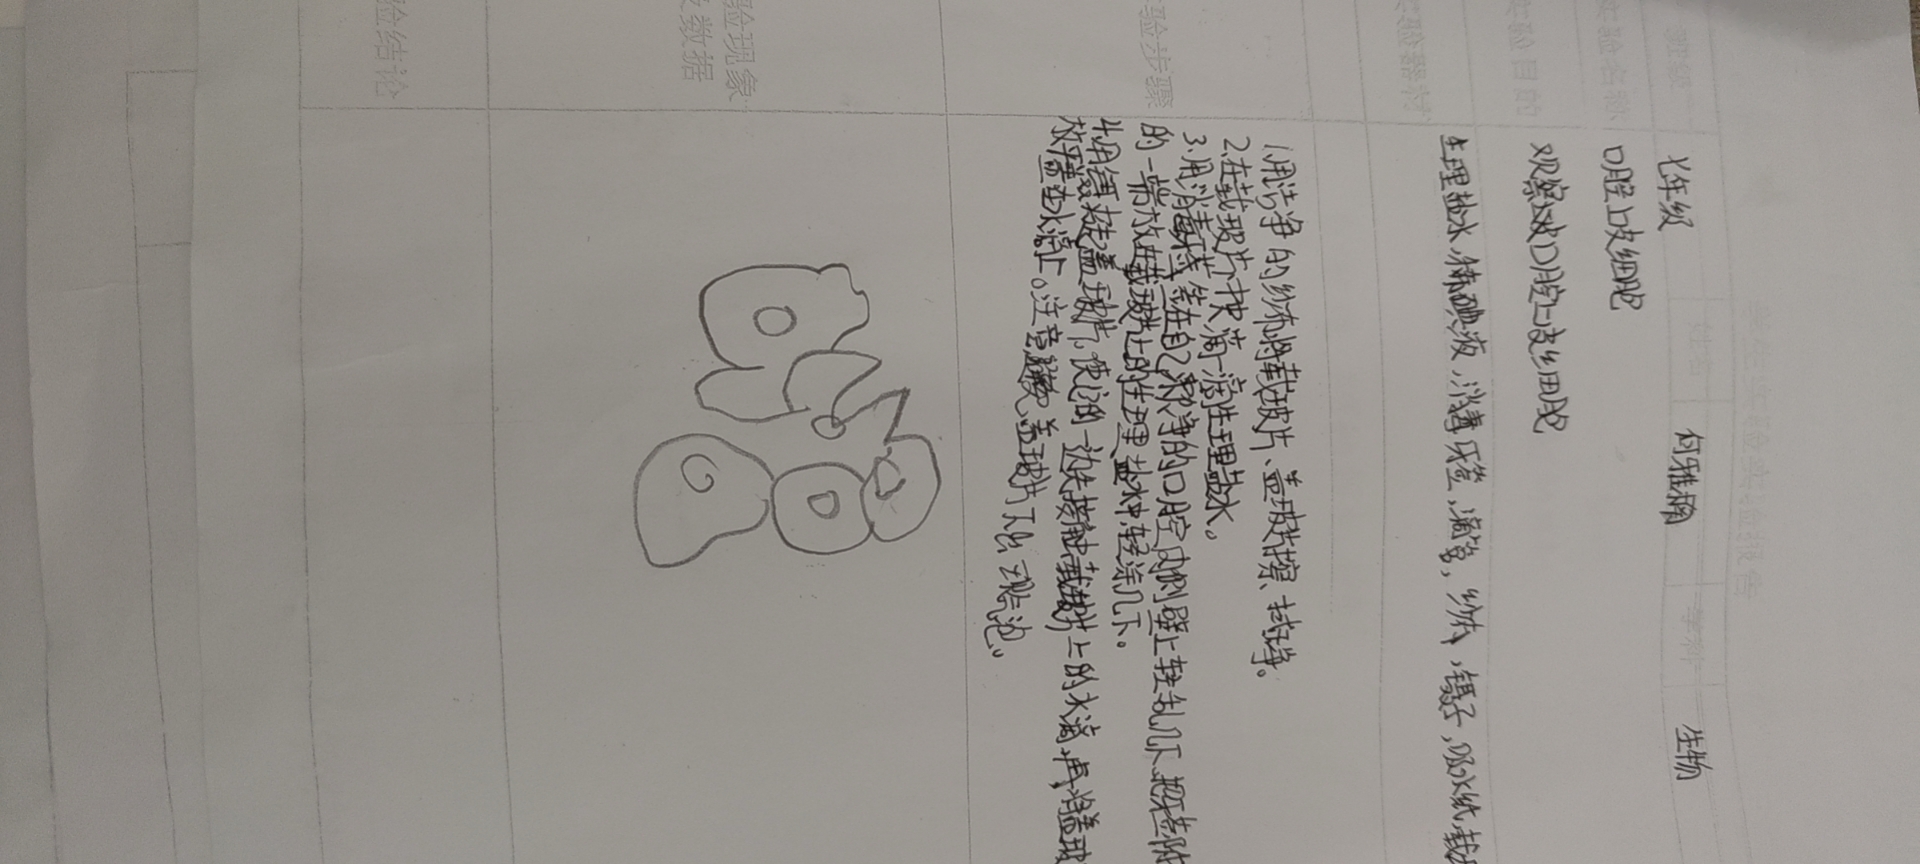 学生实验实验报告
班级 七年级 姓名 何雅楠 学科 生物
实验名称 口腔上皮细胞
实验目的 观察口腔上皮细胞
实验器材 生理盐水,稀碘液,消毒牙签,滴管,纱布,镊子,吸水纸,载
实验步骤
1.用洁净的纱布将载玻片、盖玻片擦拭净。
2.在载玻片中央滴一滴生理盐水。
3.用消毒牙签在自己漱净的口腔内侧壁上轻轧几下,把牙签附
的一端放在载玻片上的生理盐水中轻涂几下。
4.用镊子夹起盖玻片,使它的一边先接触载玻片上的水滴,再将盖玻
放平盖在水滴上。注意避免盖玻片下出现气泡。
验现象
数据
验结论